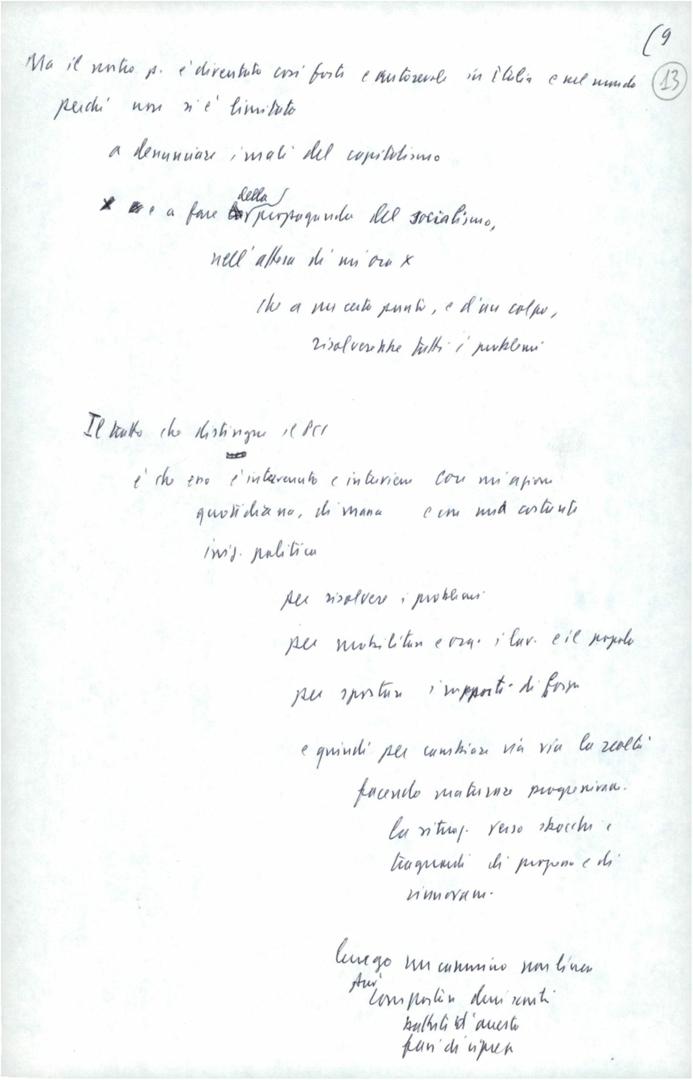 (9
13
Ma il nostro p. è diventato così forte e autorevole in Italia e nel mondo
perché non si è limitato
a denunciare i mali del capitalismo
e a fare della propaganda del socialismo,
nell'attesa di un'ora x
che a un certo punto, e d'un colpo,
risolverebbe tutti i problemi
Il tratto che distingue il PCI
è che esso è intervenuto e interviene con un'azione
quotidiana, di massa e con una costante
iniz. politica
per risolvere i problemi
per mobilitare e org. i lav. e il popolo
per spostare i rapporti di forza
e quindi per cambiare via via la realtà
facendo maturare progressivam.
la situaz. verso sbocchi e
traguardi di progresso e di
rinnovam.
lungo un cammino non lineare
battute d'arresto
fasi di ripresa